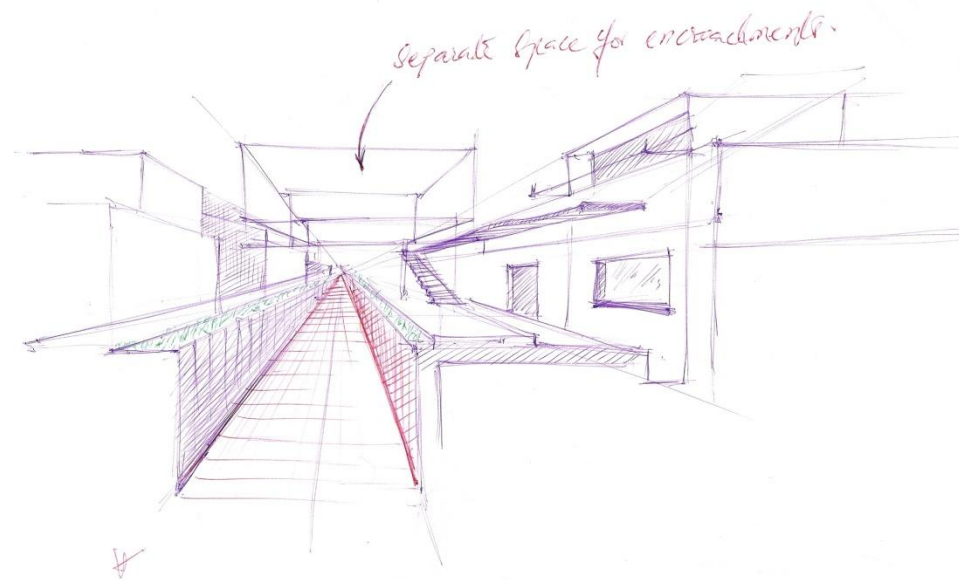 separate space for encroachments.